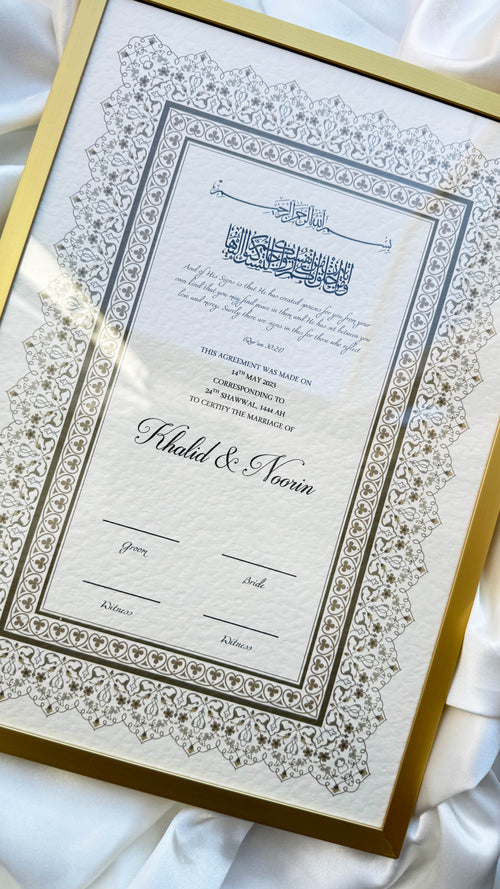 بسم الله الرحمن الرحيم
ومن آياته أن خلق لكم من أنفسكم أزواجا لتسكنوا إليها
And of His Signs is that He has created spouses for you from your
own kind that you may find peace in them and He has set between you
love and mercy. Surely there are signs in this for those who reflect
(Qur'an 30:21)
THIS AGREEMENT WAS MADE ON
14TH MAY 2023
CORRESPONDING TO
24TH SHAWWAL, 1444 AH
TO CERTIFY THE MARRIAGE OF
Khalid & Noorin
Groom
Bride
Witness
Witness